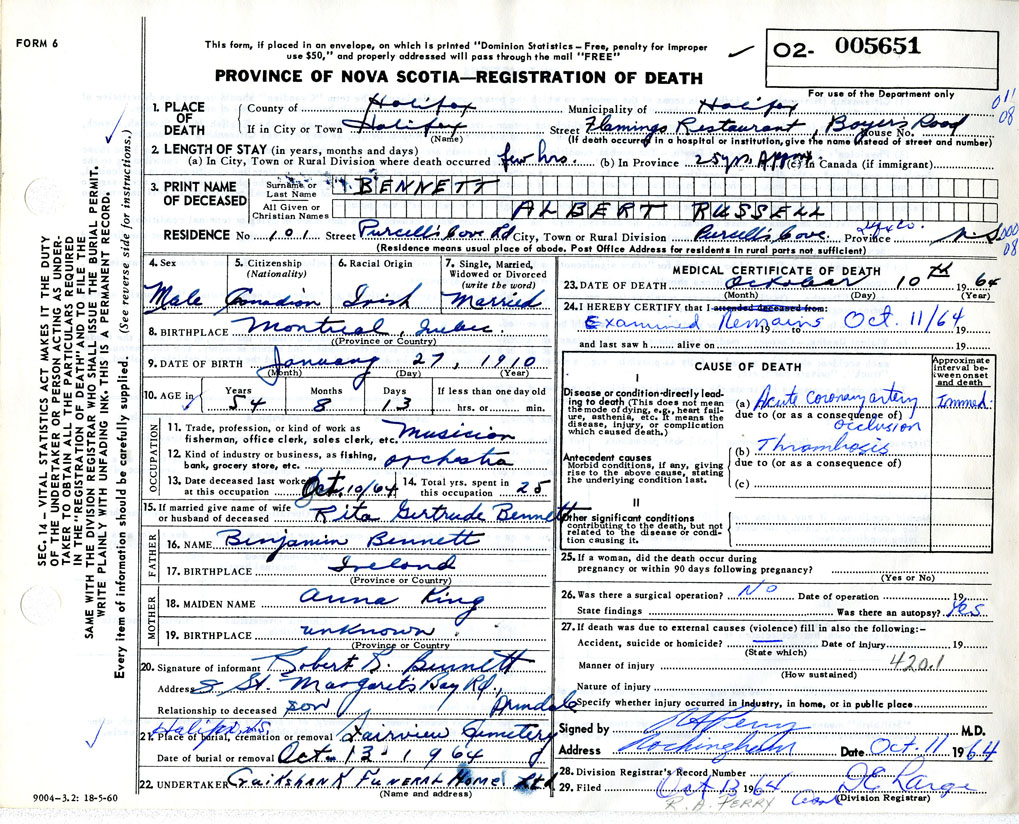 FORM 6
This form, if placed in an envelope, on which is printed "Dominion Statistics – Free, penalty for improper
use $50," and properly addressed will pass through the mail "FREE"
PROVINCE OF NOVA SCOTIA—REGISTRATION OF DEATH
02- 005651
For use of the Department only
011
08
SEC. 14 – VITAL STATISTICS ACT MAKES IT THE DUTY
OF THE UNDERTAKER OR PERSON ACTING AS UNDER-
TAKER TO OBTAIN ALL THE PARTICULARS REQUIRED
IN THE "REGISTRATION OF DEATH" AND TO FILE THE
SAME WITH THE DIVISION REGISTRAR WHO SHALL ISSUE THE BURIAL PERMIT.
WRITE PLAINLY WITH UNFADING INK. THIS IS A PERMANENT RECORD.
Every item of information should be carefully supplied. (See reverse side for instructions.)
1. PLACE OF DEATH
County of Halifax Municipality of Halifax
If in City or Town Halifax Street Flamingo Restaurant, Boyers Road House No.
(Name) (If death occurred in a hospital or institution, give the name instead of street and number)
2. LENGTH OF STAY (in years, months and days)
(a) In City, Town or Rural Division where death occurred few hrs. (b) In Province 25 yrs. Approx. (c) in Canada (if immigrant)
3. PRINT NAME OF DECEASED
Surname or Last Name BENNETT
All Given or Christian Names ALBERT RUSSELL
RESIDENCE No 101 Street Purcell's Cove Rd City, Town or Rural Division Purcell's Cove Hfx Co. Province N.S. 000
08
(Residence means usual place of abode. Post Office Address for residents in rural parts not sufficient)
4. Sex Male
5. Citizenship (Nationality) Canadian
6. Racial Origin Irish
7. Single, Married, Widowed or Divorced (write the word) Married
8. BIRTHPLACE Montreal, Quebec.
(Province or Country)
9. DATE OF BIRTH January 27, 1910
(Month) (Day) (Year)
10. AGE in Years 54 Months 8 Days 13 If less than one day old hrs. or min.
OCCUPATION
11. Trade, profession, or kind of work as fisherman, office clerk, sales clerk, etc. Musician
12. Kind of industry or business, as fishing, bank, grocery store, etc. orchestra
13. Date deceased last worked at this occupation Oct. 10/64 14. Total yrs. spent in this occupation 25
15. If married give name of wife or husband of deceased Rita Gertrude Bennett
FATHER
16. NAME Benjamin Bennett
17. BIRTHPLACE Ireland
(Province or Country)
MOTHER
18. MAIDEN NAME Anna King
19. BIRTHPLACE unknown
(Province or Country)
20. Signature of informant Robert S. Bennett
Address 8 St. Margaret's Bay Rd., Armdale
Relationship to deceased son
Halifax, N.S.
21. Place of burial, cremation or removal Fairview Cemetery
Date of burial or removal Oct. 13 - 1964
22. UNDERTAKER Cruikshank Funeral Home Ltd
(Name and address)
9004-3.2: 18-5-60
MEDICAL CERTIFICATE OF DEATH
23. DATE OF DEATH October 10th 1964
(Month) (Day) (Year)
24. I HEREBY CERTIFY that I attended deceased from:
Examined Remains Oct. 11/64 19
and last saw h alive on 19
CAUSE OF DEATH
Approximate interval between onset and death
I
Disease or condition directly leading to death (This does not mean the mode of dying, e.g., heart failure, asthenia, etc. It means the disease, injury, or complication which caused death.)
(a) Acute coronary artery occlusion Immed.
due to (or as a consequence of)
Antecedent causes
Morbid conditions, if any, giving rise to the above cause, stating the underlying condition last.
(b) Thrombosis
due to (or as a consequence of)
(c)
II
Other significant conditions
contributing to the death, but not related to the disease or condition causing it.
25. If a woman, did the death occur during
pregnancy or within 90 days following pregnancy?
(Yes or No)
26. Was there a surgical operation? No Date of operation 19
State findings Was there an autopsy? Yes
27. If death was due to external causes (violence) fill in also the following:–
Accident, suicide or homicide? — Date of injury 19
(State which)
Manner of injury 420.1
(How sustained)
Nature of injury
Specify whether injury occurred in industry, in home, or in public place
Signed by RAPerry M.D.
Address Rockingham Date Oct. 11 1964
28. Division Registrar's Record Number
29. Filed Oct 13 1964 D E Large
R. A. PERRY (Division Registrar)